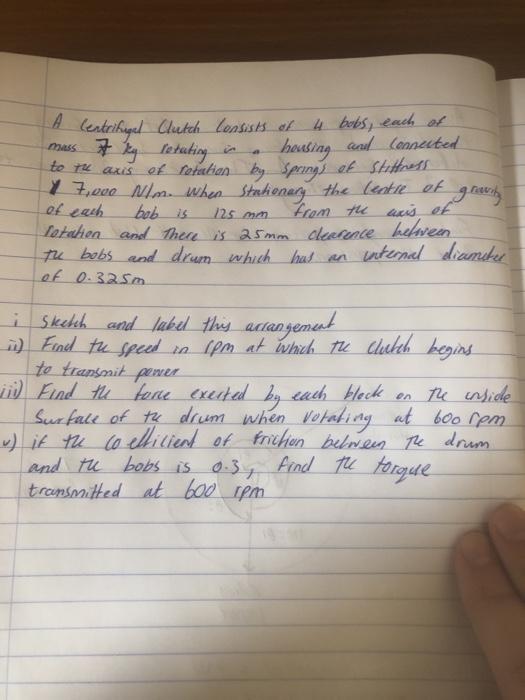 A Centrifugal Clutch Consists of 4 bobs, each of
mass 7 kg rotating in a housing and Connected
to the axis of rotation by springs of Stiffness
7,000 N/m. When Stationary the Centre of gravity
of each bob is 125 mm from the axis of
rotation and There is 25mm clearence between
the bobs and drum which has an internal diameter
of 0.325m
i Sketch and label this arrangement
ii) Find the speed in rpm at which the clutch begins
to transmit power
iii) Find the force exerted by each block on the inside
Surface of the drum when rotating at 600 rpm
v) if the coefficient of friction between the drum
and the bobs is 0.3, find the torque
transmitted at 600 rpm